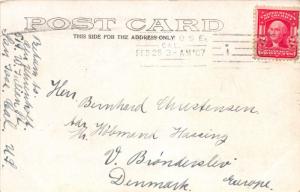 POST CARD
THIS SIDE FOR THE ADDRESS ONLY
CAL.
FEB 28 3-AM '07
Herr Bernhard Christensen
adr. Hr. Købmand Hassing
V. Brønderslev
Denmark.
Europe.
Return to
San Jose, Cal, U.S.